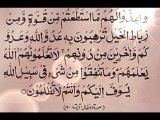 وَأَعِدُّوا۟ لَهُم مَّا ٱسْتَطَعْتُم مِّن قُوَّةٍ وَمِن
رِّبَاطِ ٱلْخَيْلِ تُرْهِبُونَ بِهِۦ عَدُوَّ ٱللَّهِ وَعَدُوَّ
كُمْ وَءَاخَرِينَ مِن دُونِهِمْ لَا تَعْلَمُونَهُمُ ٱللَّهُ
يَعْلَمُهُمْ وَمَا تُنفِقُوا۟ مِن شَىْءٍ فِى سَبِيلِ ٱللَّهِ
يُوَفَّ إِلَيْكُمْ وَأَنتُمْ لَا تُظْلَمُونَ
سورة الأنفال آية